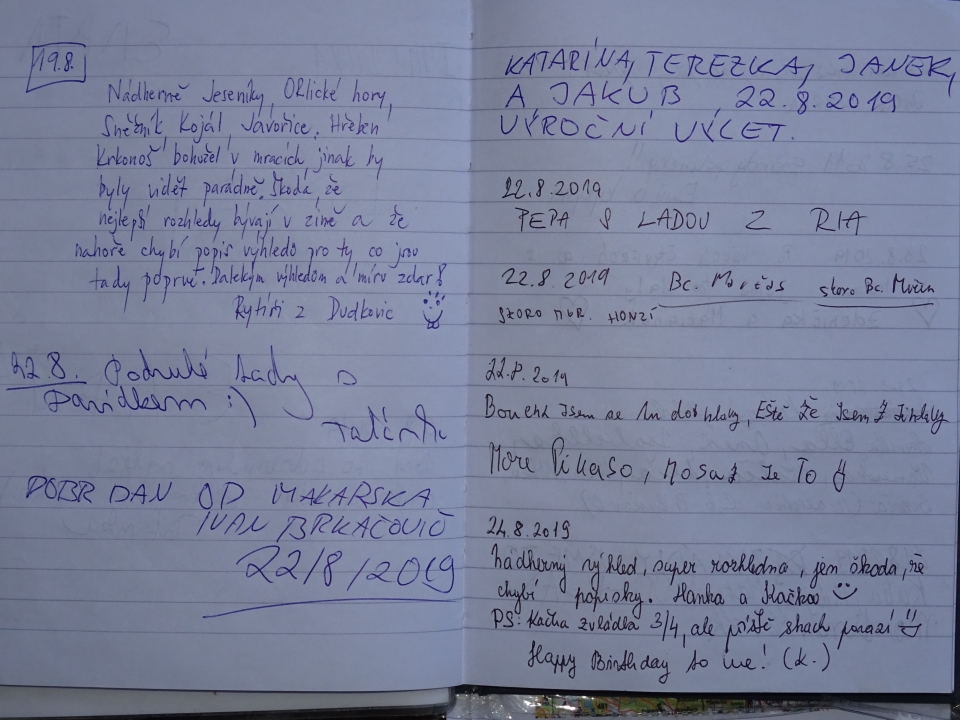 19.8.
Nádherně Jeseníky, Orlické hory,
Sněžník, Kojál, Javořice, Hřeben
Krkonoš bohužel v mracích jinak by
byly vidět parádně. Škoda že
nejlepší rozhledy bývají v zimě a že
nahoře chybí popis výhledů pro ty co jsou
tady poprvé. Dalekým výhledům a míru zdar!
Rytíři z Dudkovic
22.8. Podruhé tady s
Davídkem :)
DOBR DAN OD MAKARSKA
IVAN BRKAČOVIČ
22/8/2019
KATARÍNA, TEREZKA, JANEK,
A JAKUB, 22.8.2019
VÝROČNÍ VÝLET.
22.8.2019
PEPA S LADOU Z RIA
22.8.2019 Bc. skoro Bc.
SKORO MGR. HONZÍ
22.8.2019
jsem se do hlavy, Eště že jsem z
More Pikaso, je to
24.8.2019
Nádherný výhled, super rozhledna, jen škoda, že
chybí popisky. Hanka a Kačka
PS: Kačka zvládla 3/4, ale příště strach porazí
Happy Birthday to me! (K.)